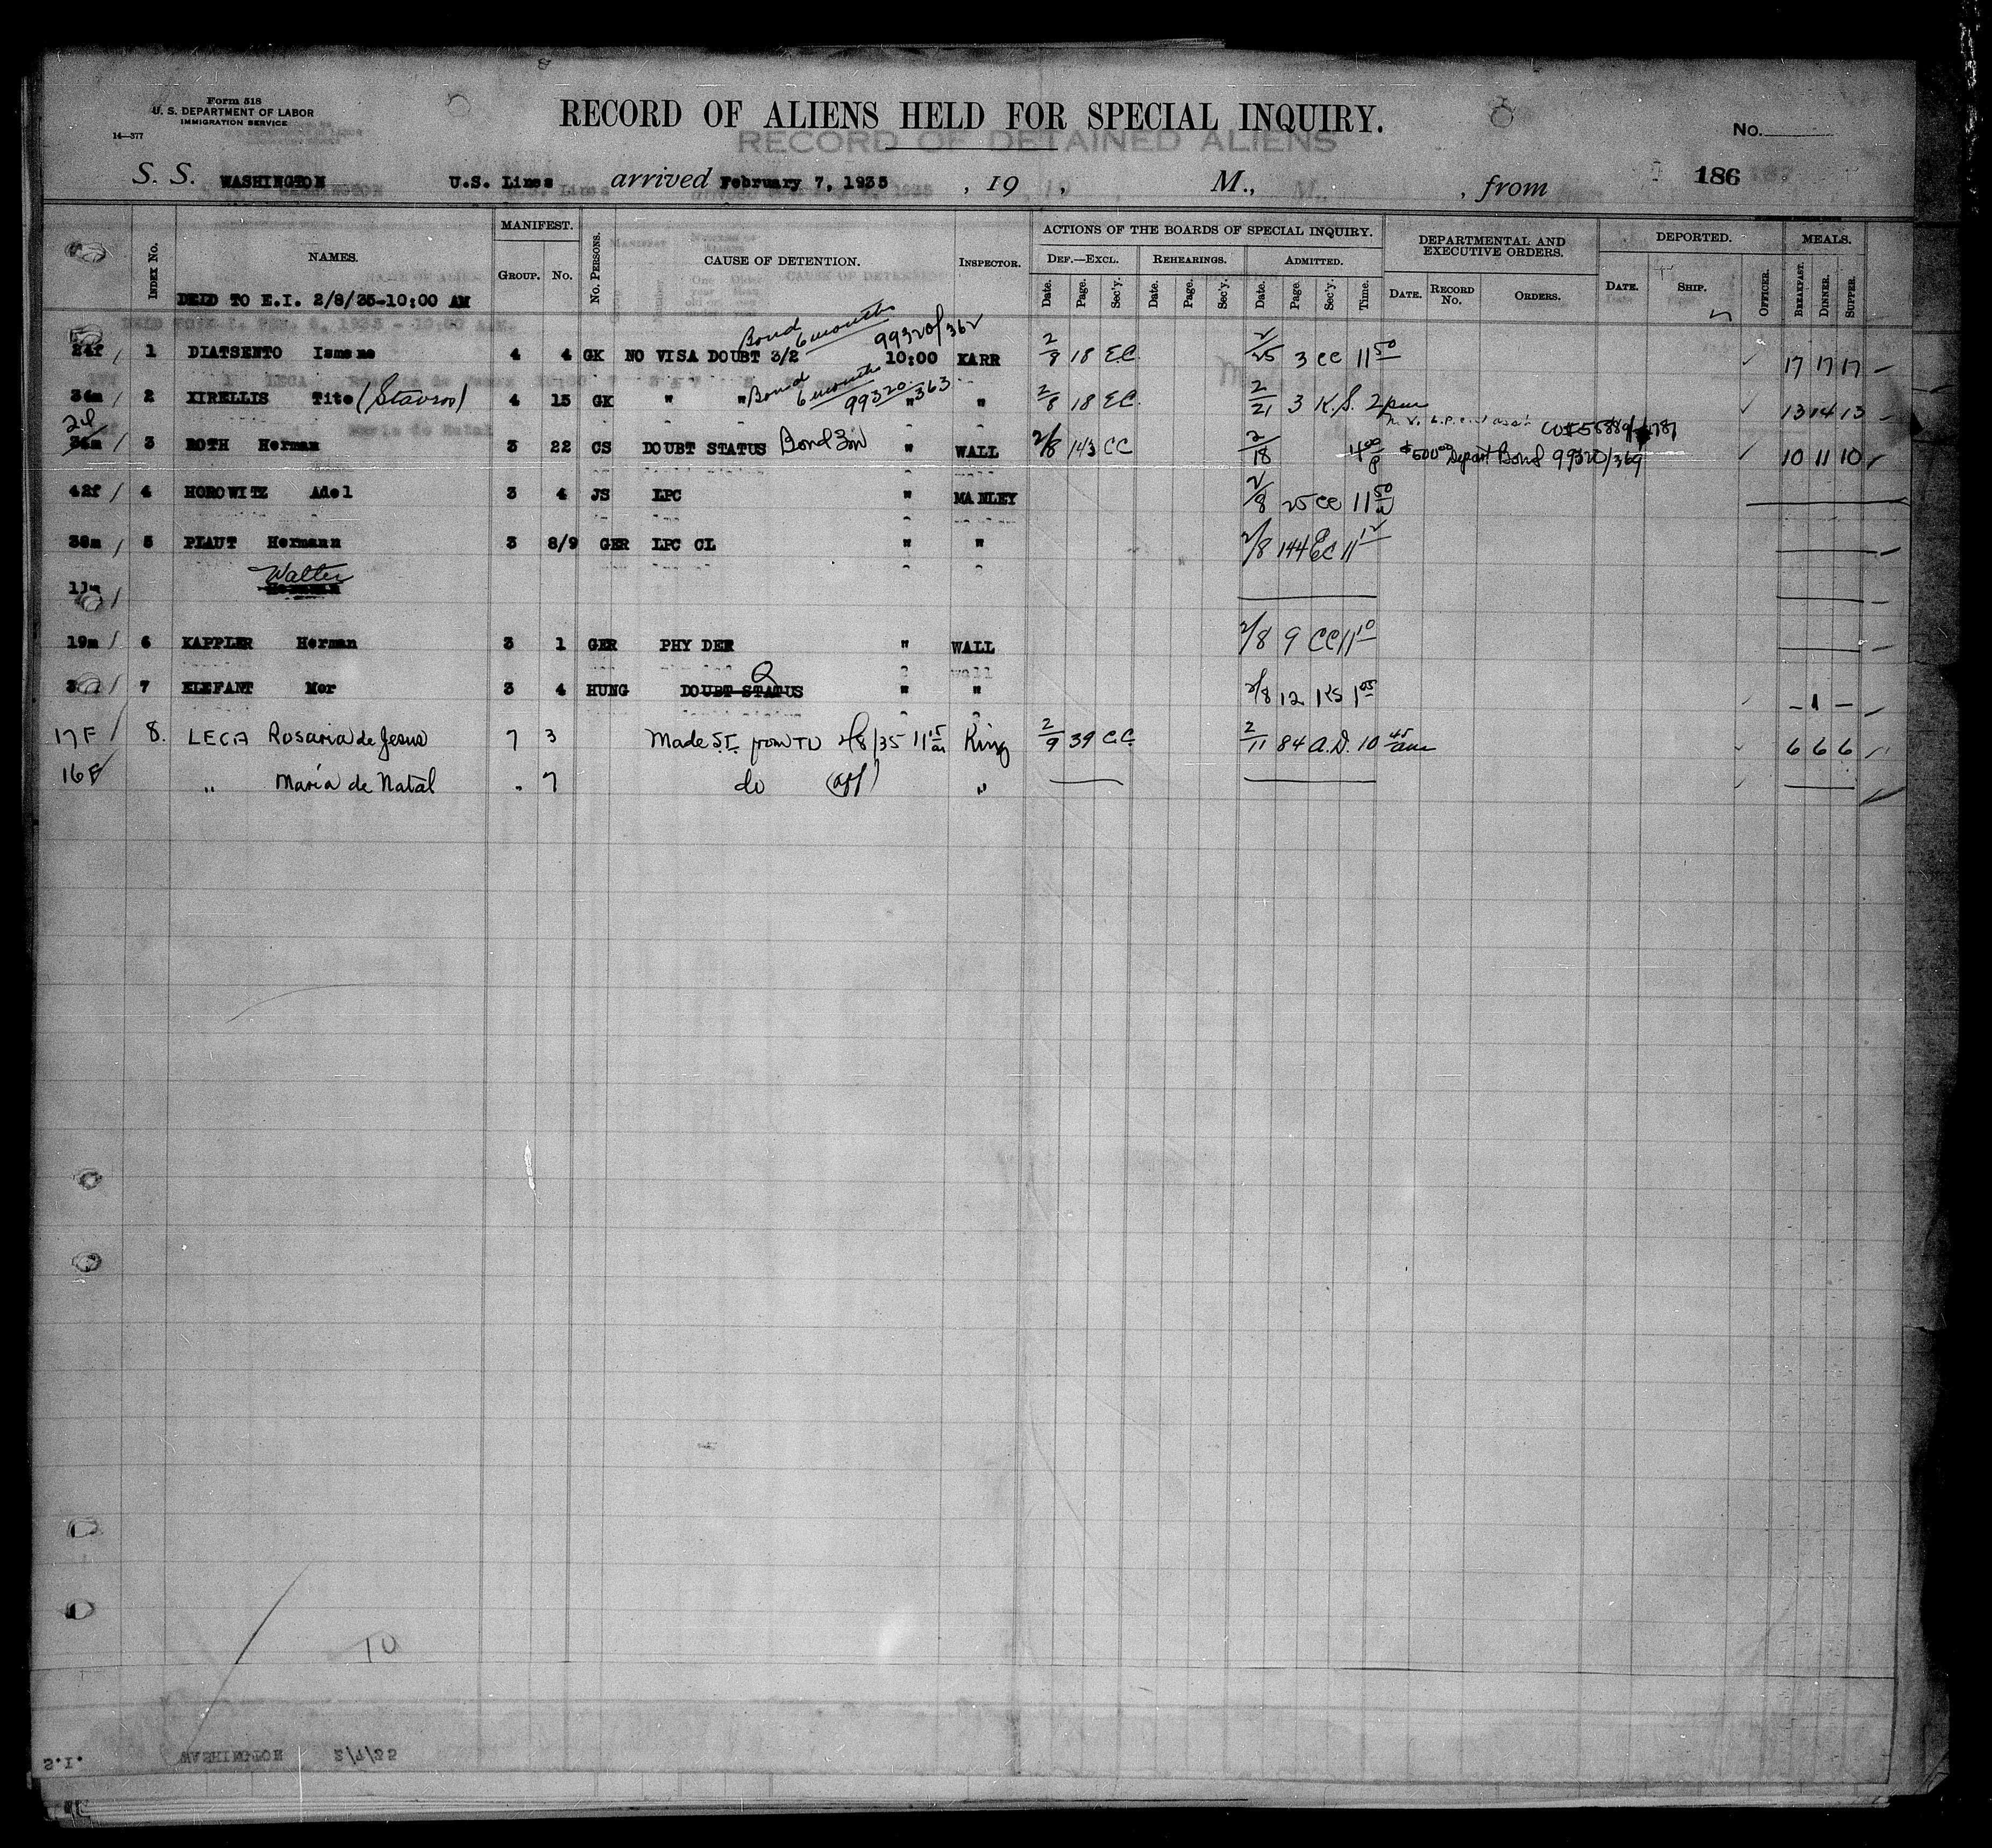 Form 518
U. S. DEPARTMENT OF LABOR
IMMIGRATION SERVICE
14—377
RECORD OF ALIENS HELD FOR SPECIAL INQUIRY.
RECORD OF DETAINED ALIENS
No.
S. S. WASHINGTON U.S. Lines arrived February 7, 1935 , 19 , M., , from 186
Index No. NAMES. MANIFEST. Group. No. No. Persons. CAUSE OF DETENTION. Inspector.
ACTIONS OF THE BOARDS OF SPECIAL INQUIRY. DEPARTMENTAL AND EXECUTIVE ORDERS. DEPORTED. MEALS.
Def.—Excl. Rehearings. Admitted.
Date. Page. Sec'y. Date. Page. Sec'y. Date. Page. Sec'y. Time. Date. Record No. Orders. Date. Ship. Officer. Breakfast. Dinner. Supper.
DELD TO E.I. 2/8/35-10:00 AM
Bond 6 months 99320/362
24f 1 DIATSENTO Ismene 4 4 GK NO VISA DOUBT 3/2 10:00 KARR 2/8 18 E.C. 2/25 3 CC 11 50 17 17 17
Bond 6 months 99320/363
34m 2 XIRELLIS Tito (Stavros) 4 15 GK " " " " 2/8 18 E.C. 2/21 3 K.S. 2 pm 13 14 13
3 ROTH Herman 3 22 CS DOUBT STATUS Bond 3m " WALL 2/8 143 CC 2/18 4 00 P $500 00 Depart Bond 99320/369 10 11 10
42f 4 HOROWITZ Adel 3 4 JS LPC " MANLEY 2/8 25 CC 11 50
38m 5 PLAUT Hermann 3 8/9 GER LPC CL " " 2/8 144 EC 11 12
11m Walter
19m 6 KAPPLER Herman 3 1 GER PHY DEF " WALL 2/8 9 CC 11 10
7 ELEFANT Mor 3 4 HUNG DOUBT STATUS " " 2/8 12 KS 1 05 – 1 –
17F 8. LECA Rosaria de Jesus 7 3 Made S.I. from TD 2/8/35 11 15 am King 2/9 39 C.C. 2/11 84 A.D. 10 45 am 6 6 6
16F " Maria de Natal " 7 do "
10
S.I. WASHINGTON 2/7/35